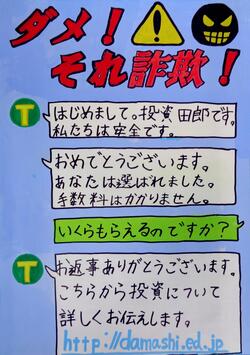 ダメ!
それ詐欺!
T
はじめまして。投資田郎です。
私たちは安全です。
おめでとうございます。
あなたは選ばれました。
手数料はかかりません。
いくらもらえるのですか?
T
お返事ありがとうございます。
こちらから投資について
詳しくお伝えします。
http://damashi.ed.jp